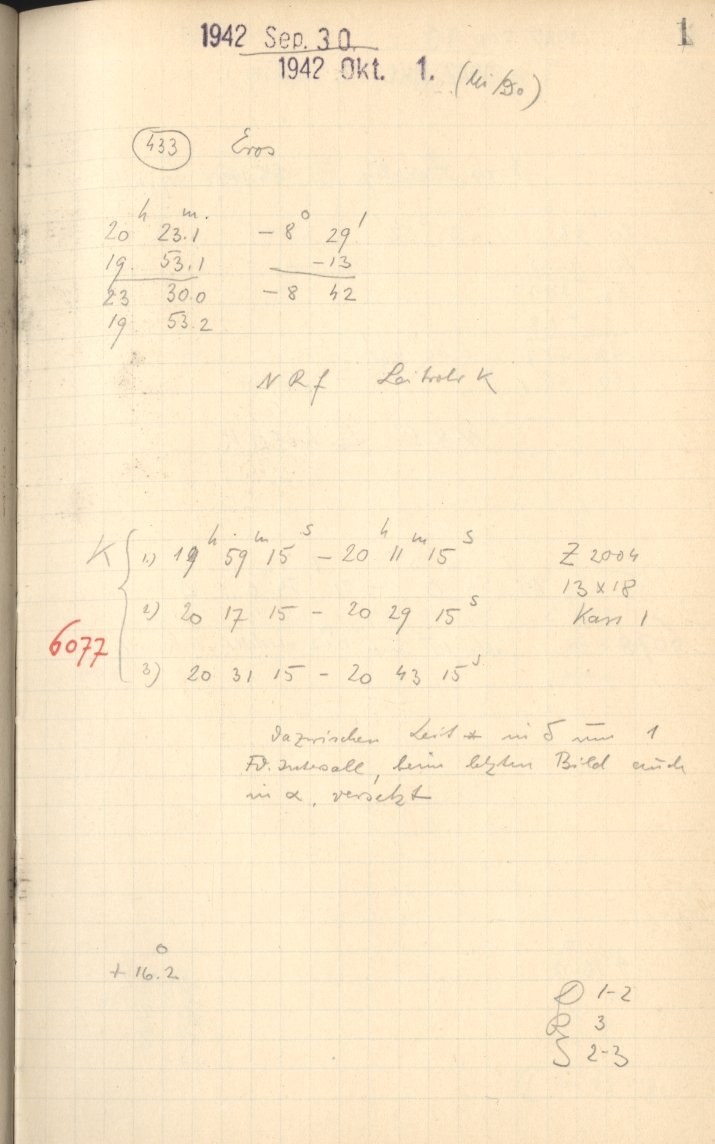 1
1942 Sep. 30.
1942 Okt. 1. (Mi/Do)
433 Eros
h m. ° '
20 23.1 – 8 29
19. 53.1 –13
23 30.0 – 8 42
19. 53.2
N R f Leitrohr K
K 1) 19h 59m 15s – 20h 11m 15s Z 2004
13 x 18
2) 20 17 15 – 20 29 15s Kass 1
6077
3) 20 31 15 – 20 43 15s
dazwischen Leit * in δ um 1
Fd. Intervall, beim letzten Bild auch
in α, versetzt
+ 16.2°
D 1-2
R 3
S 2-3